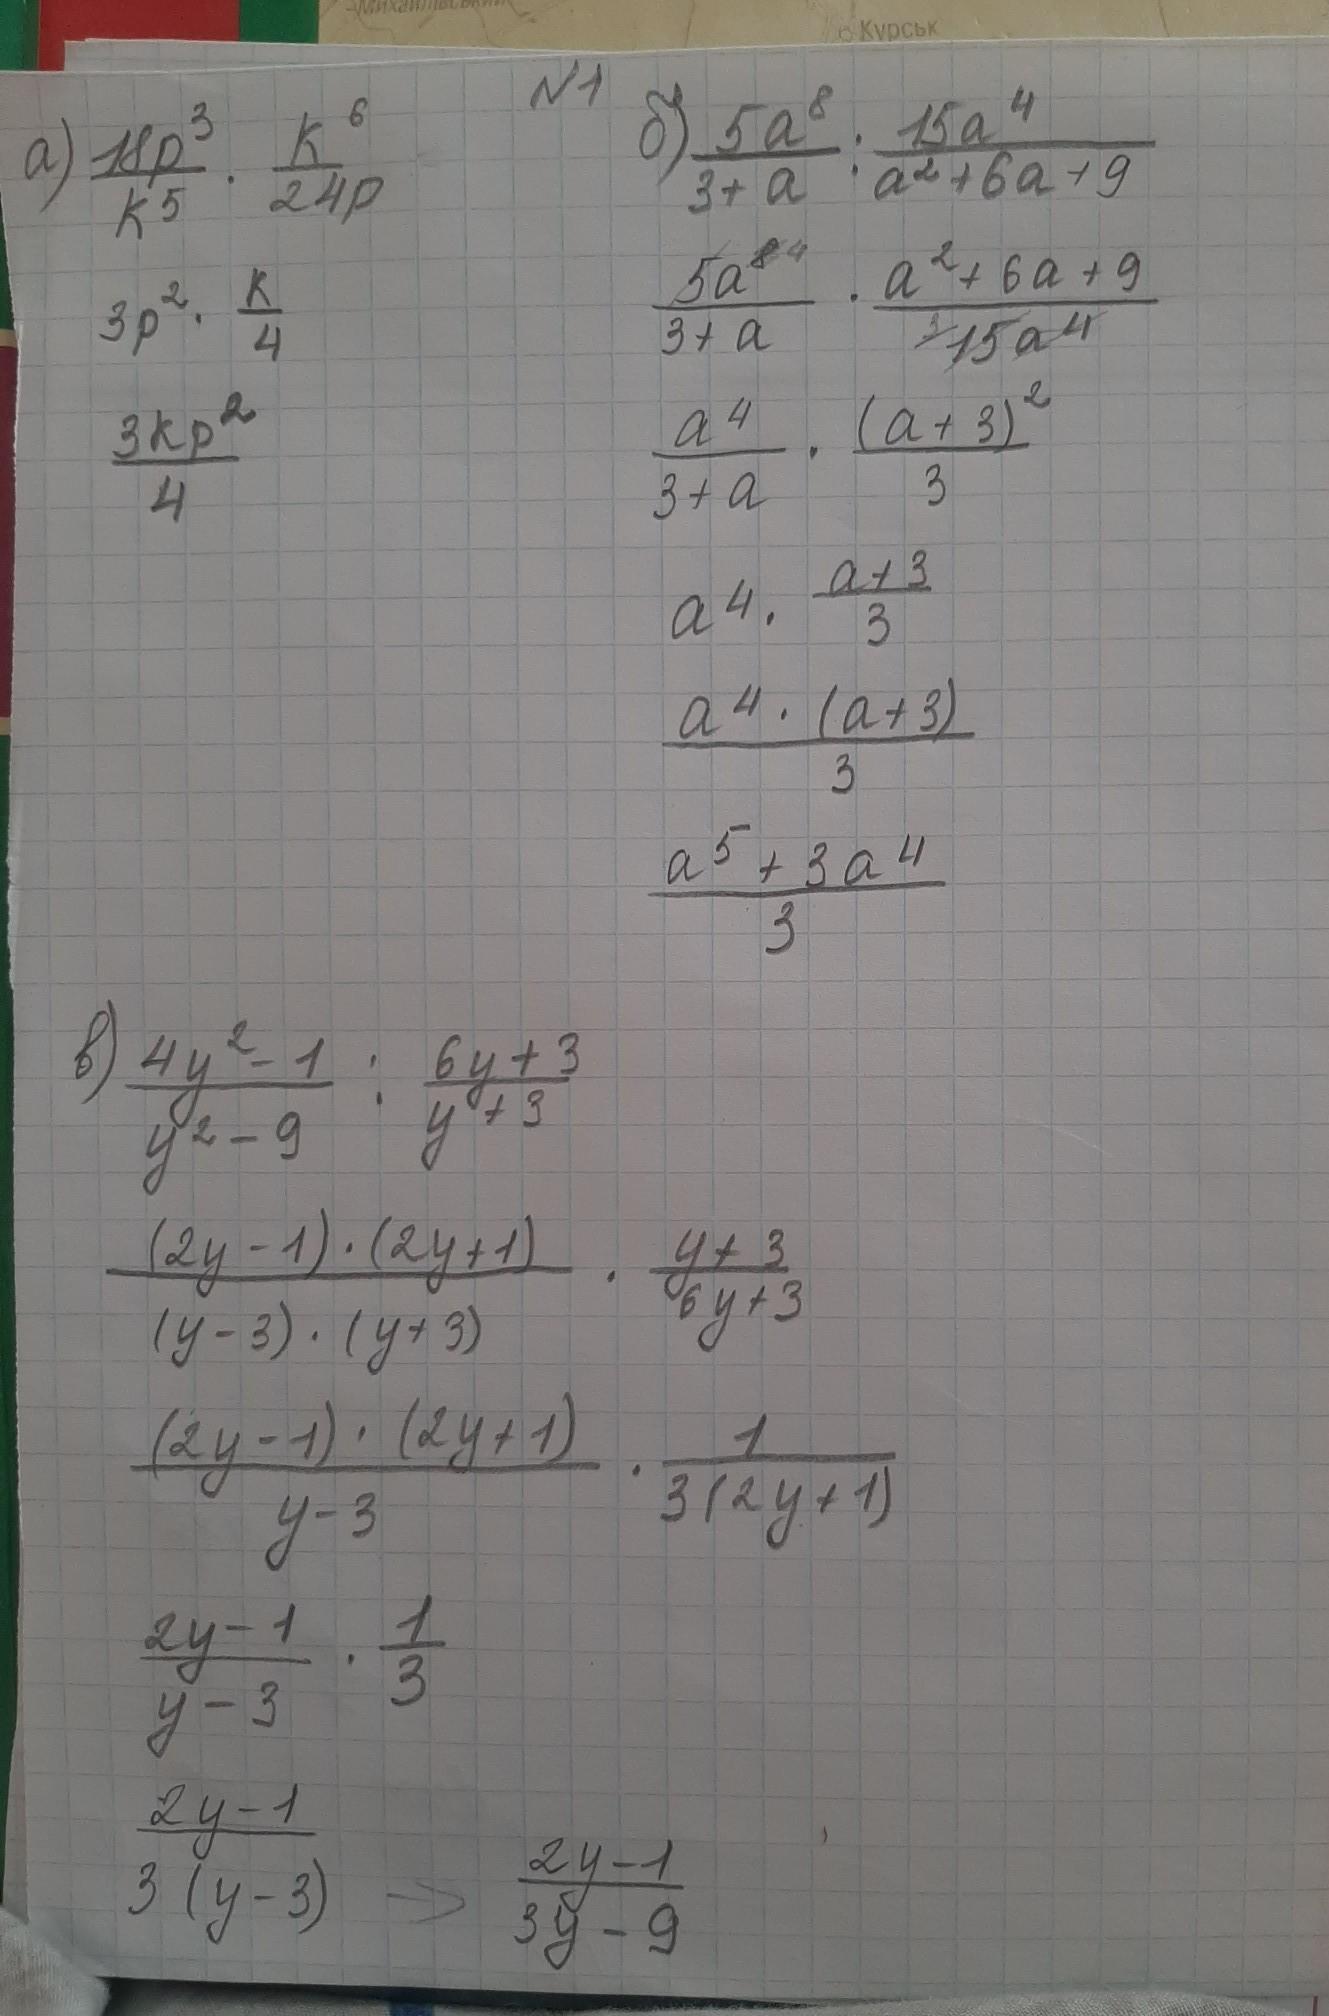 Михайлівський
Курськ
N1
а) 18p³/k⁵ · k⁶/24p
3p² · k/4
3kp²/4
б) 5a⁸/(3+a) : 15a⁴/(a²+6a+9)
5a⁸ ⁴/(3+a) · (a²+6a+9)/(³15a⁴)
a⁴/(3+a) · (a+3)²/3
a⁴ · (a+3)/3
a⁴ · (a+3)/3
(a⁵+3a⁴)/3
в) (4y²-1)/(y²-9) : (6y+3)/(y+3)
(2y-1)·(2y+1)/((y-3)·(y+3)) · (y+3)/(6y+3)
(2y-1)·(2y+1)/(y-3) · 1/(3(2y+1))
(2y-1)/(y-3) · 1/3
(2y-1)/(3(y-3)) -> (2y-1)/(3y-9)